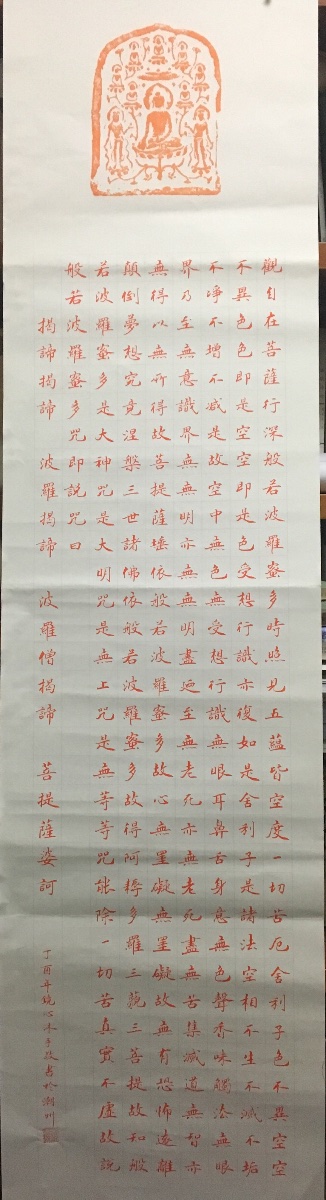 觀自在菩薩行深般若波羅蜜多時照見五蘊皆空度一切苦厄舍利子色不異空空
不異色色即是空空即是色受想行識亦復如是舍利子是諸法空相不生不滅不垢
不淨不增不減是故空中無色無受想行識無眼耳鼻舌身意無色聲香味觸法無眼
界乃至無意識界無無明亦無無明盡迺至無老死亦無老死盡無苦集滅道無智亦
無得以無所得故菩提薩埵依般若波羅蜜多故心無罣礙無罣礙故無有恐怖遠離
顛倒夢想究竟涅槃三世諸佛依般若波羅蜜多故得阿耨多羅三藐三菩提故知般
若波羅蜜多是大神咒是大明咒是無上咒是無等等咒能除一切苦真實不虛故說
般若波羅蜜多咒即說咒曰
揭諦揭諦 波羅揭諦 波羅僧揭諦 菩提薩婆訶
丁酉年心沐手敬書於潮州